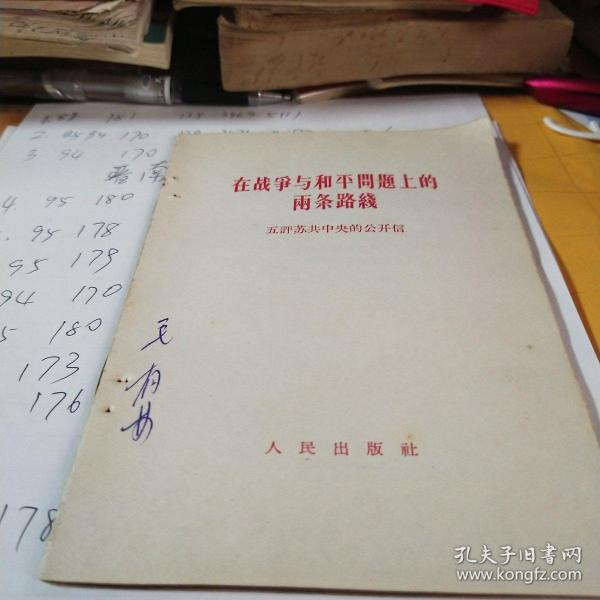 在战爭与和平問題上的
兩条路綫
五評苏共中央的公开信
王
人民出版社
2. 9534 170
3. 94 170
4 95 180
95 178
95 179
94 170
5 180
173
176
178
孔夫子旧书网
www.kongfz.com